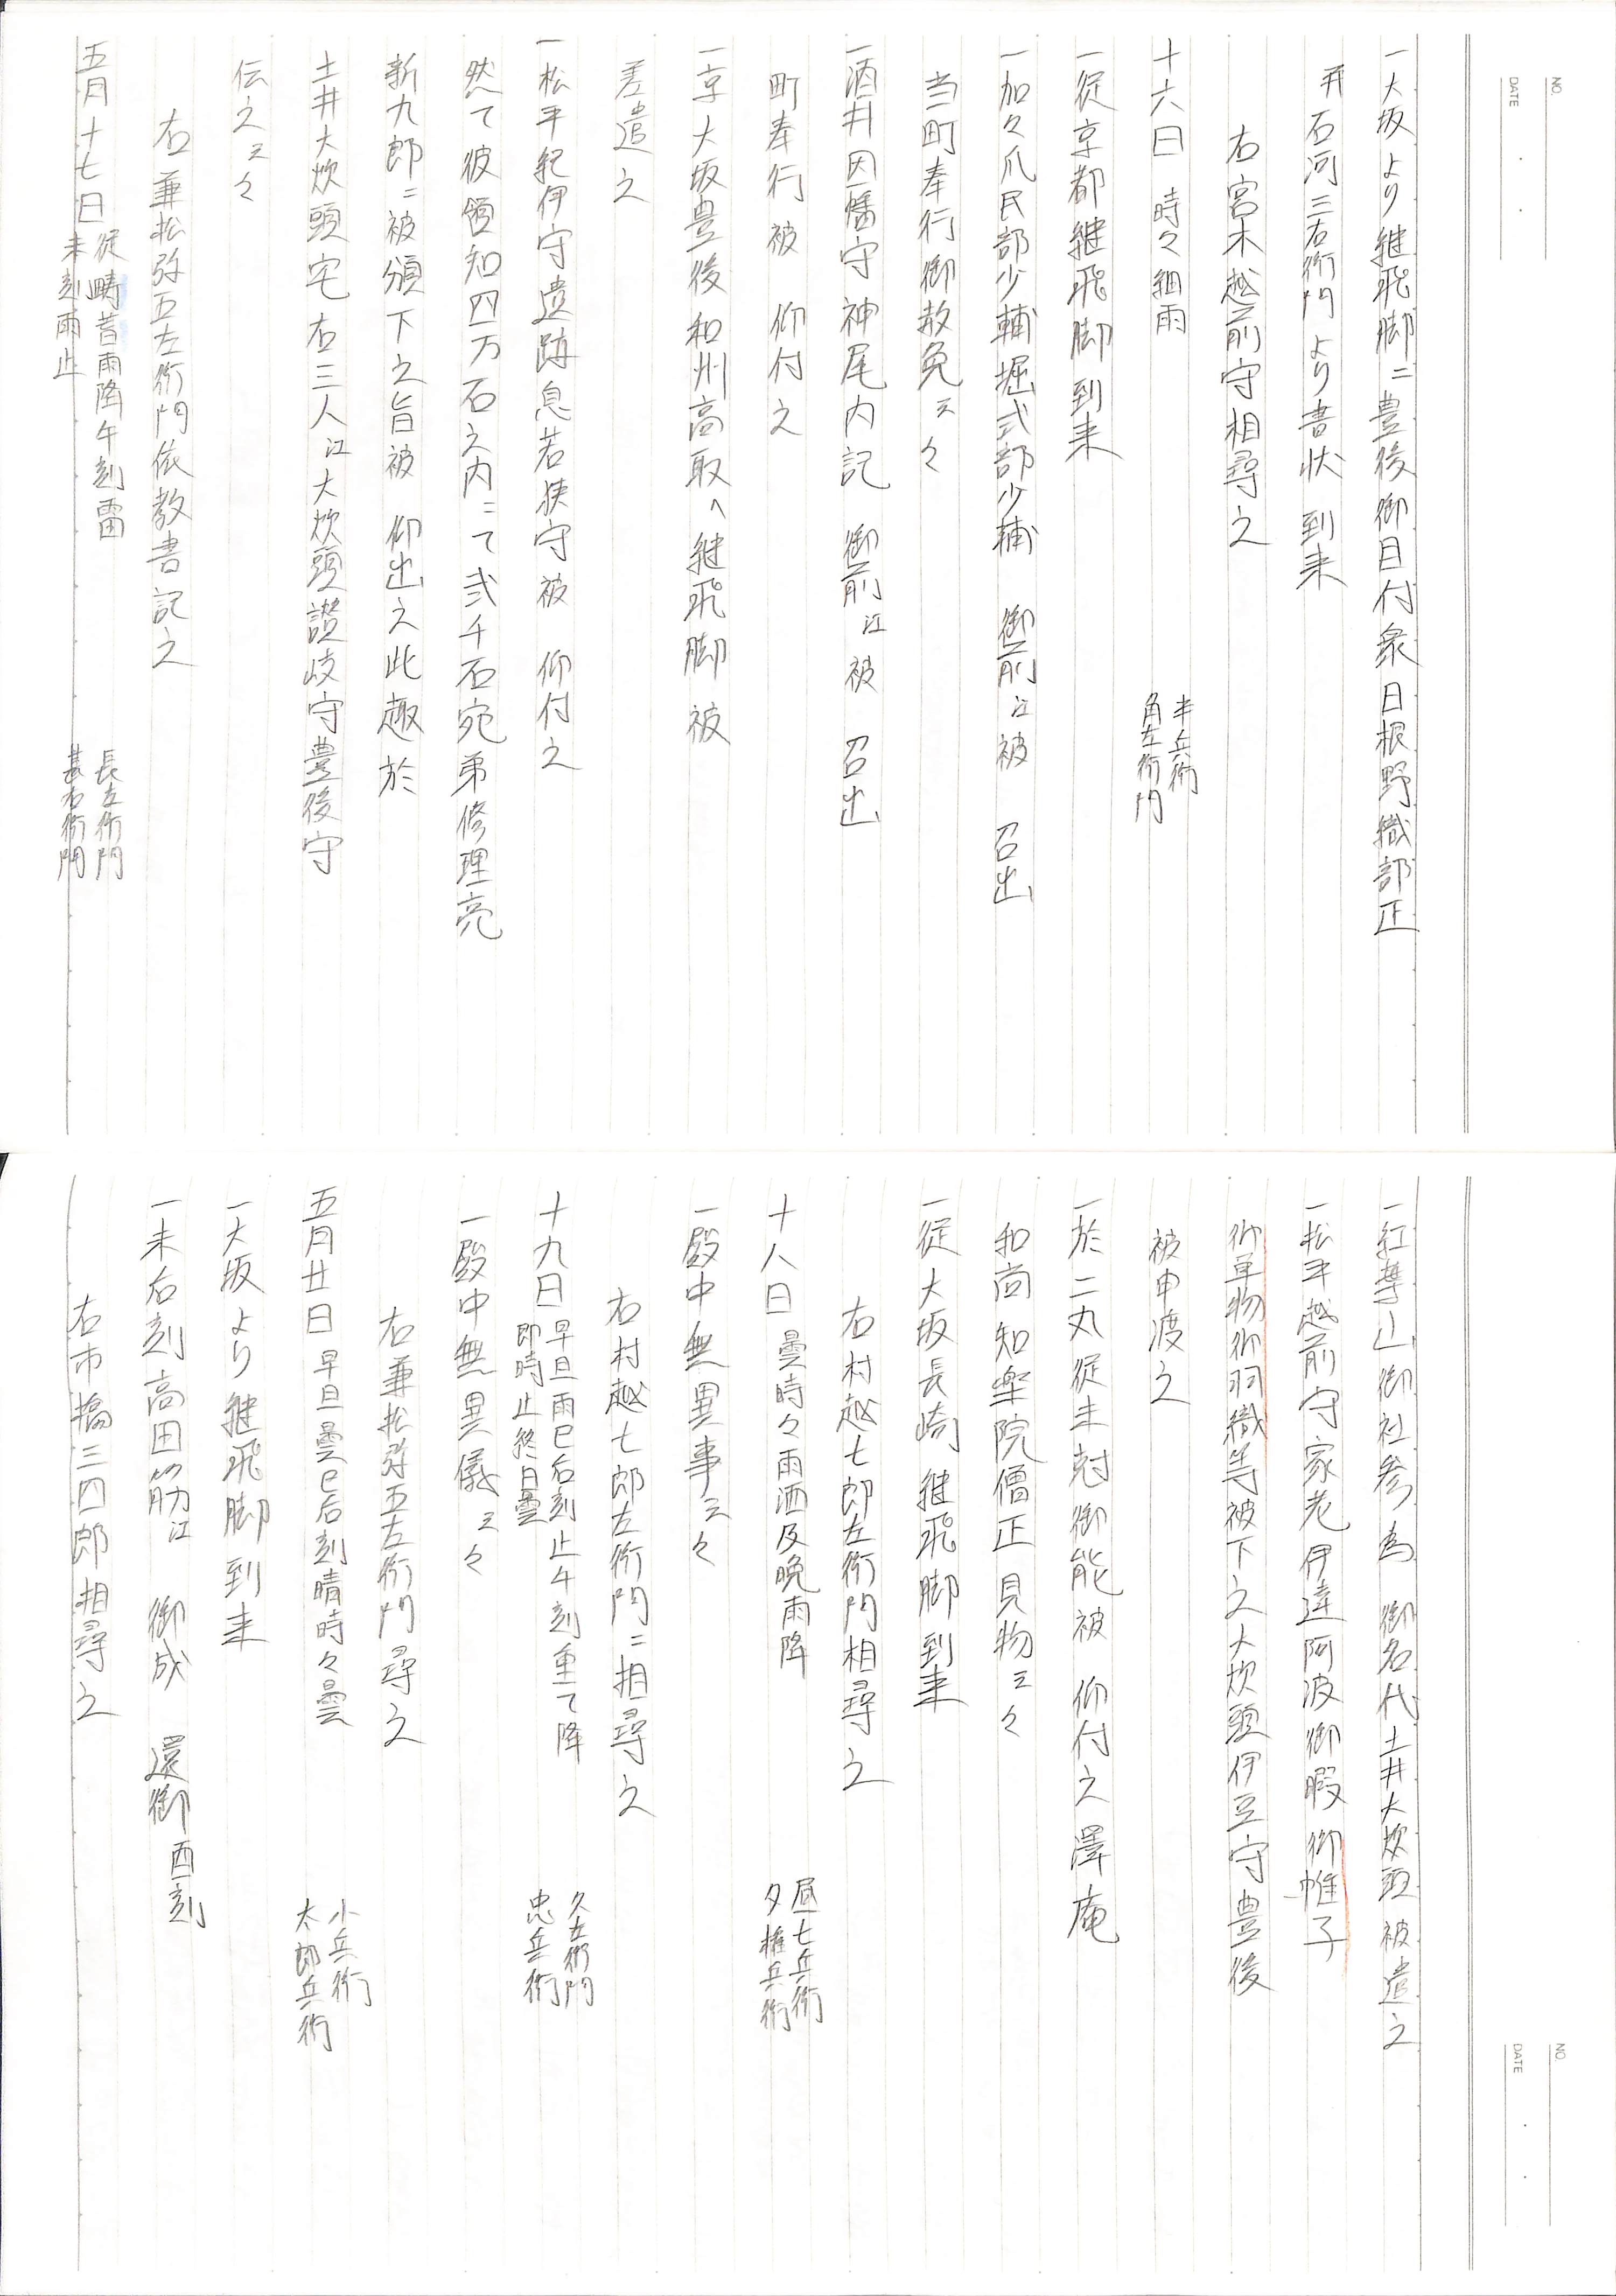 NO.
DATE
一大坂より継飛脚ニ豊後御目付衆日根野織部正
并石河三右衛門より書状到来
右宮木越前守相尋之
十六日 時々細雨 半兵衛
角左衛門
一従京都継飛脚到来
一加々爪民部少輔堀式部少輔 御前江被 召出
当町奉行御赦免云々
一酒井因幡守神尾内記 御前江被 召出
町奉行被 仰付之
一京大坂豊後和州高取へ継飛脚被
差遣之
一松平紀伊守遺跡息若狭守被 仰付之
然て彼領知四万石之内ニて弐千石宛弟修理亮
新九郎ニ被頒下之旨被 仰出之此趣於
土井大炊頭宅右三人江大炊頭讃岐守豊後守
伝之云々
右兼松弥五左衛門依教書記之
五月十七日 従疇昔雨降午刻雷
未刻雨止 長左衛門
甚右衛門
NO.
DATE
一紅葉山御社参為 御名代土井大炊頭被遣之
一松平越前守家老伊達阿波御暇御帷子
御単物御羽織等被下之大炊頭伊豆守豊後
被申渡之
一於二丸従未尅御能被 仰付之澤庵
和尚知楽院僧正見物云々
一従大坂長崎継飛脚到来
右村越七郎左衛門相尋之
十八日 曇時々雨洒及晩雨降 昼七兵衛
夕権兵衛
一殿中無異事云々
右村越七郎左衛門ニ相尋之
十九日 早旦雨巳后刻止午刻重て降
即時止終日曇 久左衛門
忠兵衛
一殿中無異儀云々
右兼松弥五左衛門尋之
五月廿日 早旦曇巳后刻晴時々曇 小兵衛
太郎兵衛
一大坂より継飛脚到来
一未后刻高田筋江 御成 還御酉刻
右市橋三四郎相尋之